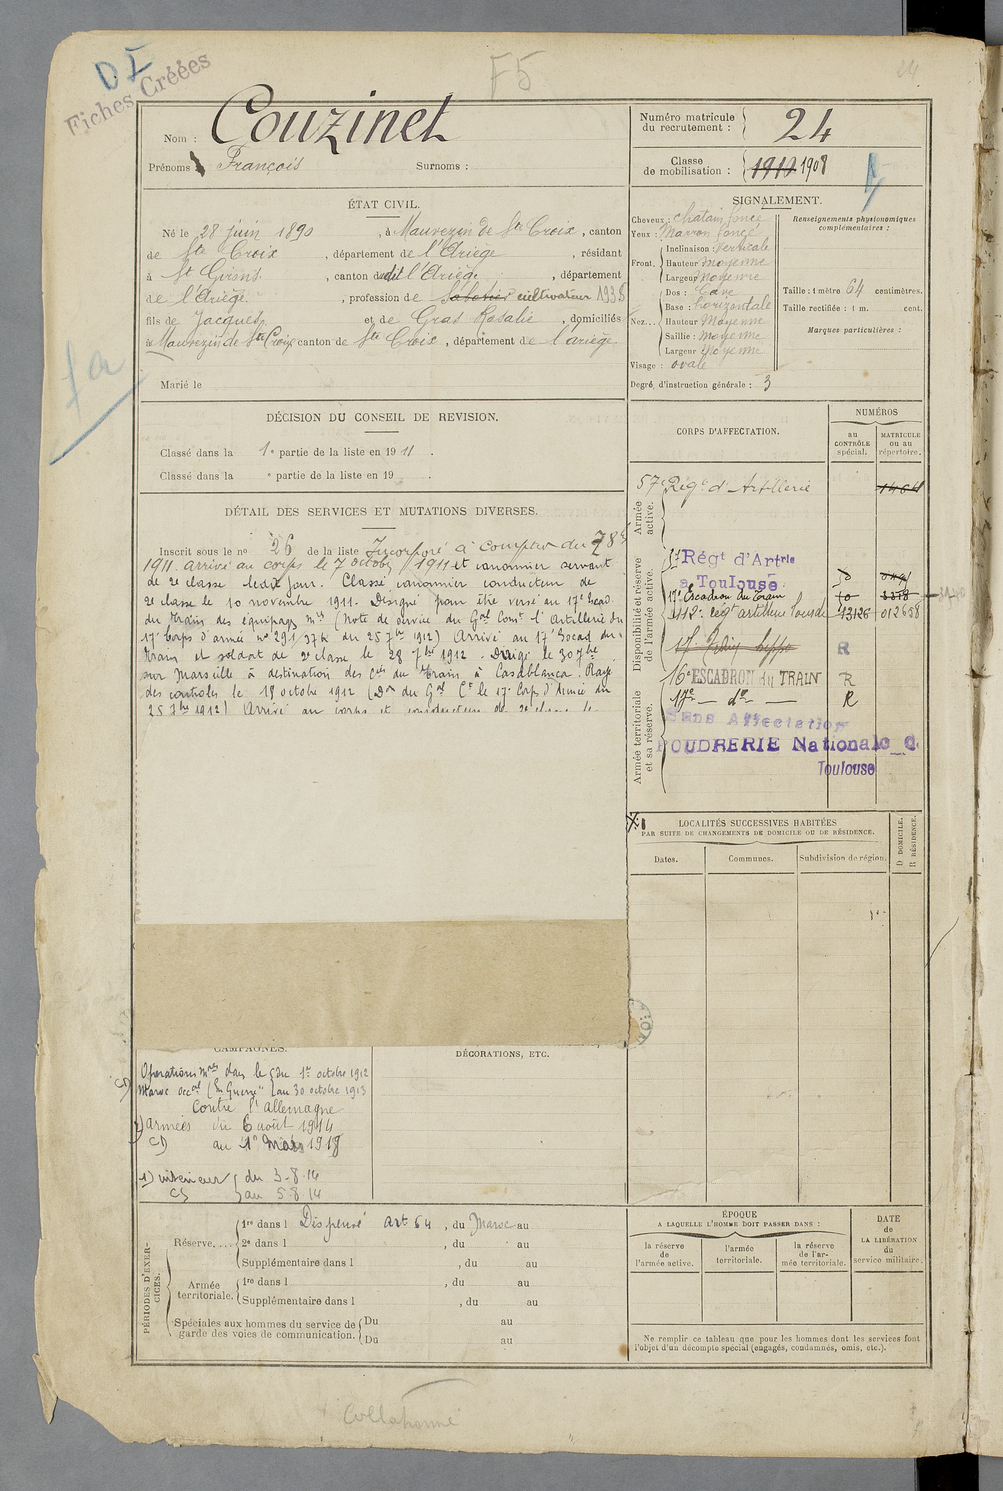 DI
Fiches Créées
F5
24
Nom : Couzinet
Prénoms : François Surnoms :
Numéro matricule du recrutement : 24
Classe de mobilisation : 1910 1908
ÉTAT CIVIL.
Né le 28 juin 1890, à Mauvezin de Ste Croix, canton
de Ste Croix, département de l'Ariège, résidant
à St Girons, canton dudit l'Ariège, département
de l'Ariège, profession de Sabotier cultivateur 1935
fils de Jacques et de Gras Rosalie, domiciliés
à Mauvezin de Ste Croix canton de Ste Croix, département de l'ariège
Marié le
SIGNALEMENT.
Cheveux : chatain foncé
Yeux : Marron foncé
Front. Inclinaison : verticale
Hauteur moyenne
Largeur Moyenne
Nez... Dos : Cave
Base : horizontale
Hauteur Moyenne
Saillie : moyenne
Largeur Moyenne
Visage : ovale
Renseignements physionomiques complémentaires :
Taille : 1 mètre 64 centimètres.
Taille rectifiée : 1 m. cent.
Marques particulières :
Degré d'instruction générale : 3
DÉCISION DU CONSEIL DE REVISION.
Classé dans la 1e partie de la liste en 1911.
Classé dans la e partie de la liste en 19 .
DÉTAIL DES SERVICES ET MUTATIONS DIVERSES.
Inscrit sous le no 26 de la liste Incorporé à compter du 8
1911. arrivé au corps le 7 octobre 1911 et canonnier servant
de 2e classe ledit jour. Classé canonnier conducteur de
2e classe le 10 novembre 1911. Désigné pour être versé au 17e Escad.
du Train des équipages mres (Note de service du Gal Comt l'Artillerie du
17e Corps d'armée no 291/37K du 25 7bre 1912) Arrivé au 17e Escad du
train et soldat de 2e classe le 28 7bre 1912. Dirigé le 30 7bre
sur Marseille à destination des Cies du Train à Casablanca. Rayé
des contrôles le 18 octobre 1912 (Don du Gal Ct le 17e Corps d'Armée du
25 7bre 1912) Arrivé au corps et conducteur de 2e classe le
CORPS D'AFFECTATION.
NUMÉROS
au CONTRÔLE spécial.
MATRICULE ou au répertoire.
Armée active.
57e Régt d'Artillerie
Disponibilité et réserve de l'armée active.
Régt d'Artrie
à Toulouse
17e Escadron du Train
régt artillerie lourde 13126 012658
R
16e ESCADRON du TRAIN R
17e — do — R
Armée territoriale et sa réserve.
Sans Affectation
POUDRERIE Nationale
Toulouse
LOCALITÉS SUCCESSIVES HABITÉES
PAR SUITE DE CHANGEMENTS DE DOMICILE OU DE RÉSIDENCE.
Dates.
Communes.
Subdivision de région.
D DOMICILE.
R RÉSIDENCE.
CAMPAGNES.
DÉCORATIONS, ETC.
Opérations mres dans le du 1er octobre 1912
Maroc occal (En Guerre) au 30 octobre 1913
Contre l'allemagne
armées du 6 août 1914
au 1er Mars 1918
1) intérieur du 3-8-14
au 5-8-14
PÉRIODES D'EXERCICES.
Réserve.... 1re dans l Dispensé art 64, du Maroc au
2e dans l , du au
Supplémentaire dans l , du au
Armée territoriale. 1re dans l , du au
Supplémentaire dans l , du au
Spéciales aux hommes du service de garde des voies de communication. Du au
Du au
ÉPOQUE
A LAQUELLE L'HOMME DOIT PASSER DANS :
la réserve de l'armée active.
l'armée territoriale.
la réserve de l'armée territoriale.
DATE de LA LIBÉRATION du service militaire.
Ne remplir ce tableau que pour les hommes dont les services font
l'objet d'un décompte spécial (engagés, condamnés, omis, etc.).
Collationné